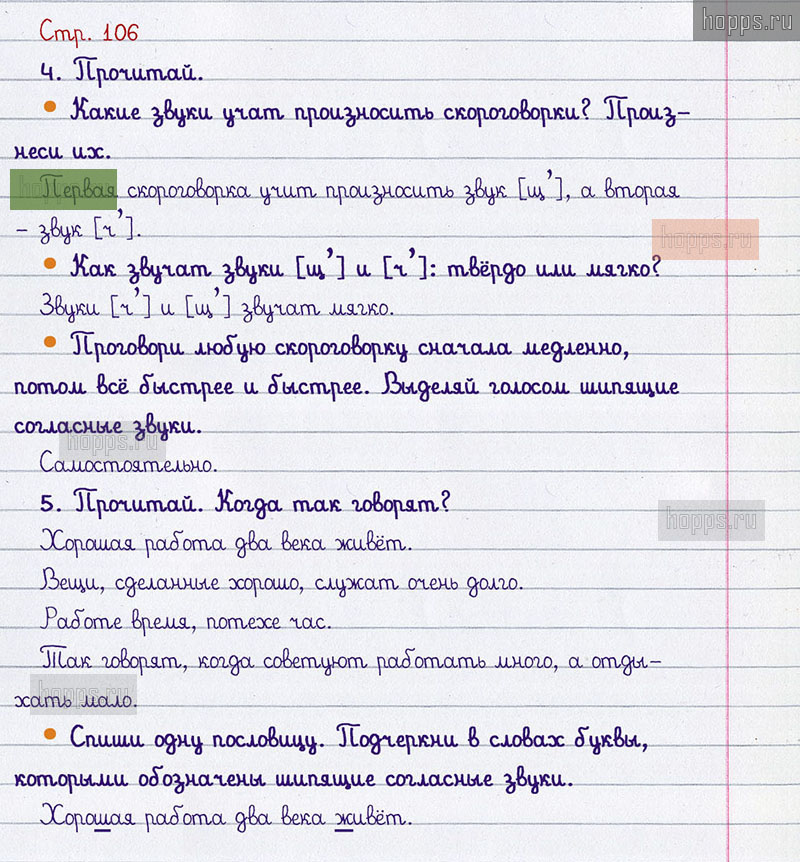 hopps.ru
Стр. 106
4. Прочитай.
• Какие звуки учат произносить скороговорки? Произ-
неси их.
Первая скороговорка учит произносить звук [щ’], а вторая
– звук [ч’].
hopps.ru
• Как звучат звуки [щ’] и [ч’]: твёрдо или мягко?
Звуки [ч’] и [щ’] звучат мягко.
• Проговори любую скороговорку сначала медленно,
потом всё быстрее и быстрее. Выделяй голосом шипящие
согласные звуки.
hopps.ru
Самостоятельно.
5. Прочитай. Когда так говорят?
hopps.ru
Хорошая работа два века живёт.
Вещи, сделанные хорошо, служат очень долго.
Работе время, потехе час.
Так говорят, когда советуют работать много, а отды-
хать мало.
hopps.ru
• Спиши одну пословицу. Подчеркни в словах буквы,
которыми обозначены шипящие согласные звуки.
Хорошая работа два века живёт.